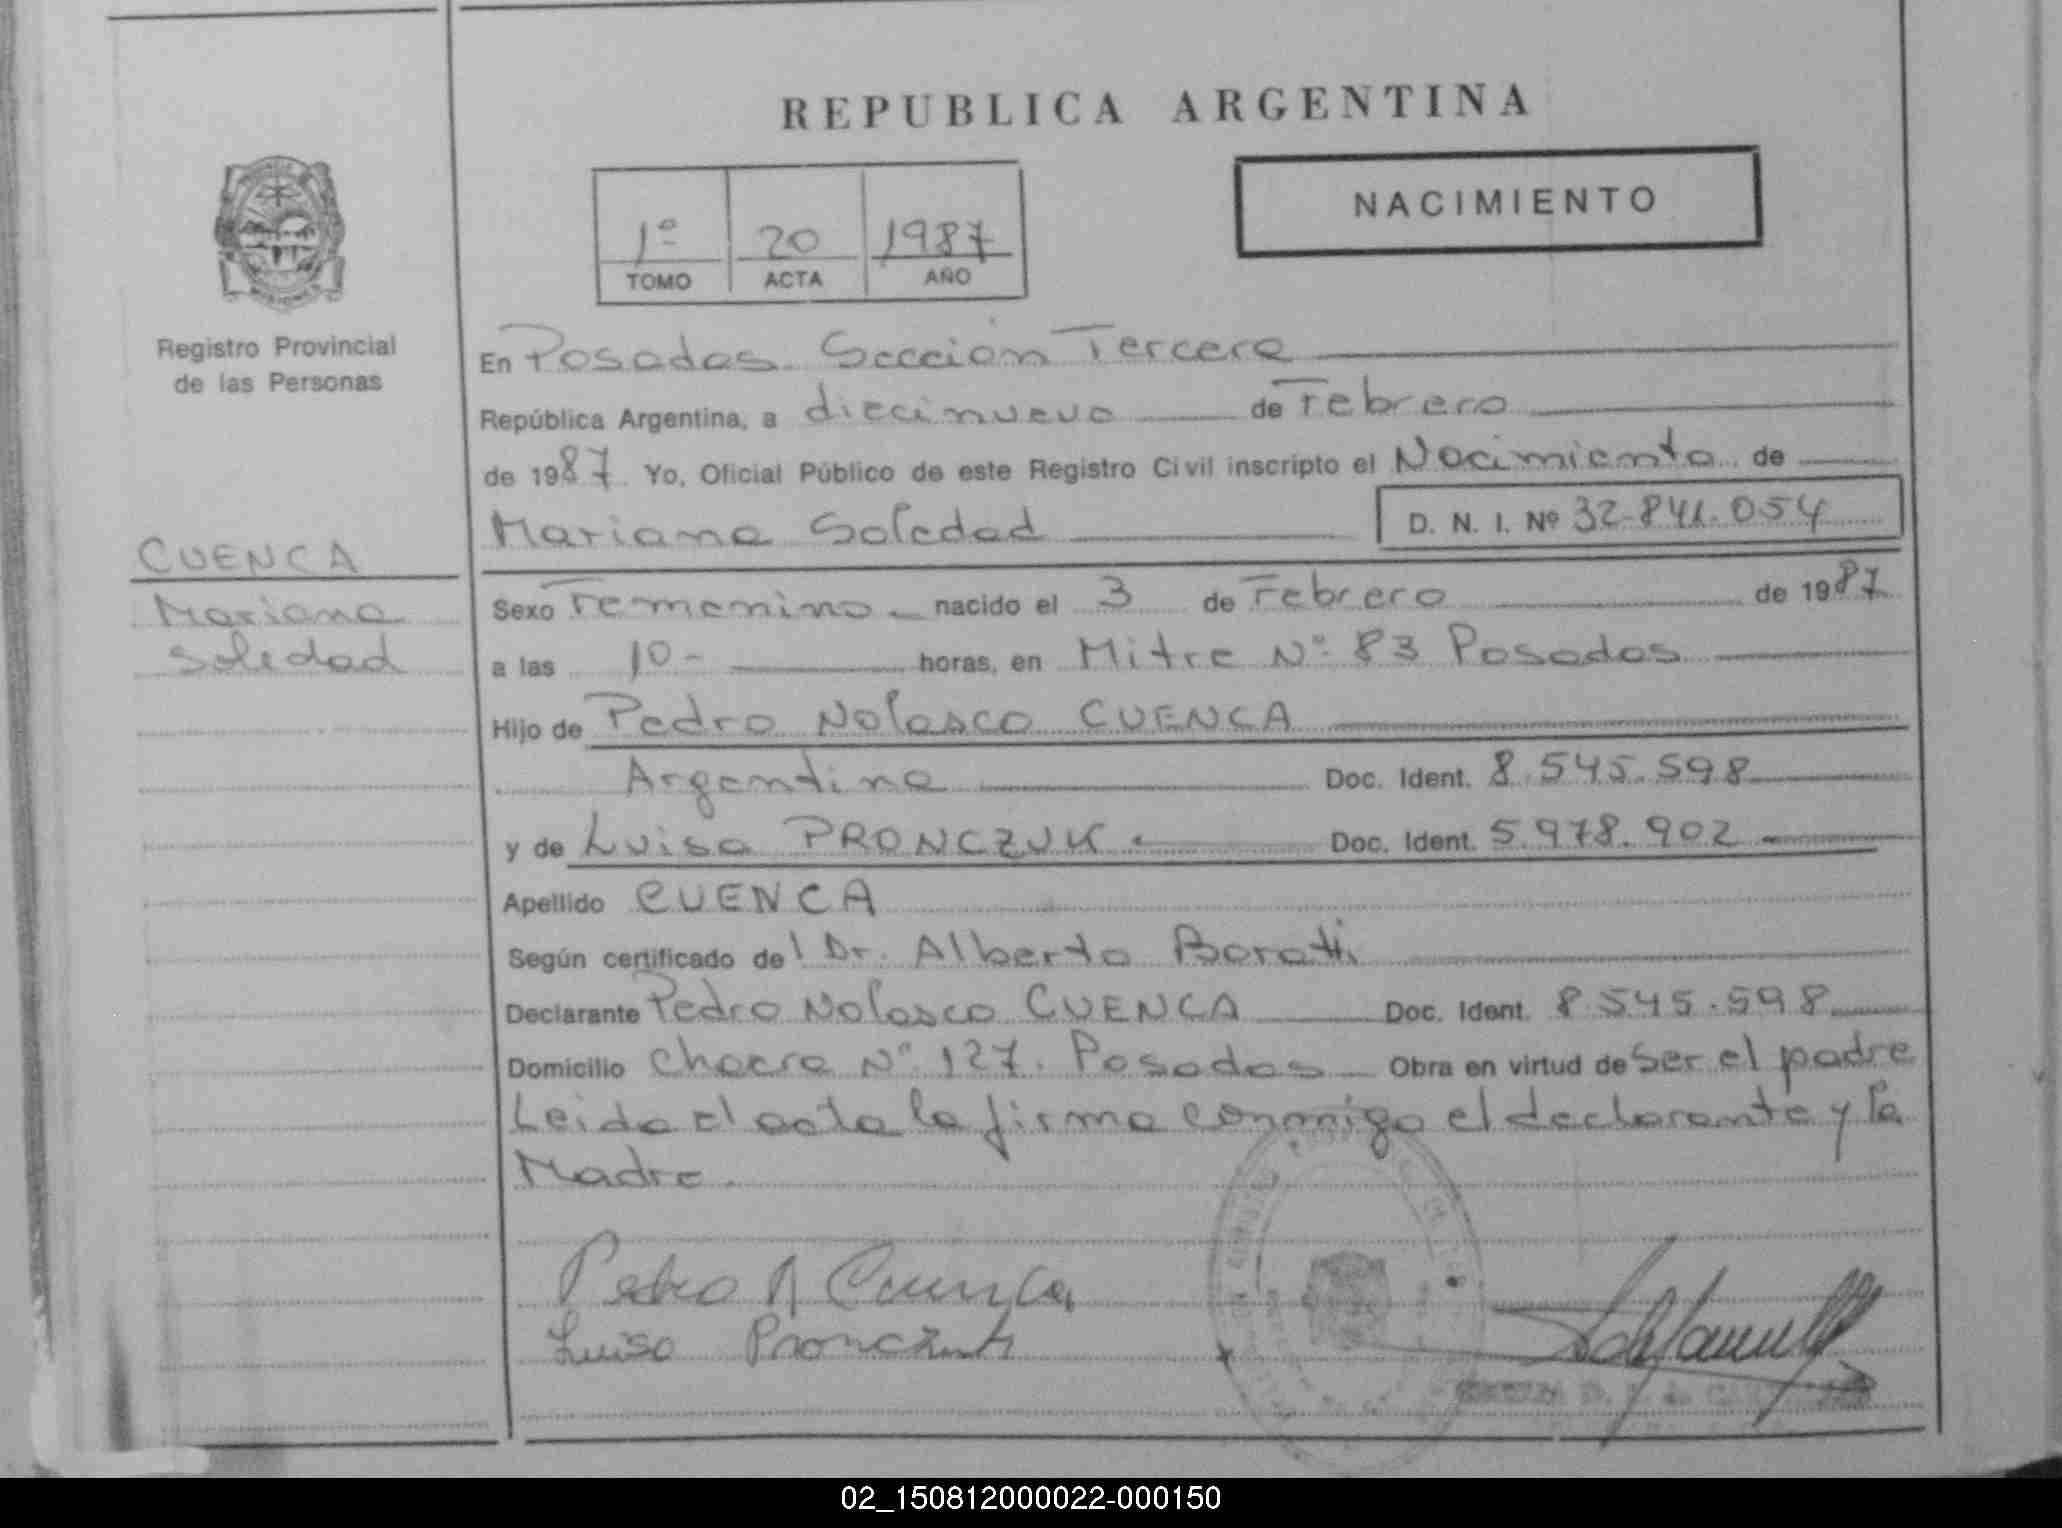 REPUBLICA ARGENTINA
NACIMIENTO
1º 20 1987
TOMO ACTA AÑO
Registro Provincial
de las Personas
En Posadas Sección Tercera
República Argentina, a diecinueve de Febrero
de 1987 Yo, Oficial Público de este Registro Civil inscripto el Nacimiento de
Mariana Soledad D. N. I. Nº 32.841.054
CUENCA
Mariana
Soledad
Sexo Femenino nacido el 3 de Febrero de 1987
a las 10 - horas, en Mitre Nº 83 Posadas
Hijo de Pedro Nolasco CUENCA
Argentina Doc. Ident. 8.545.598
y de Luisa PRONCZUK Doc. Ident. 5.978.902
Apellido CUENCA
Según certificado del Dr. Alberto Boratti
Declarante Pedro Nolasco CUENCA Doc. Ident. 8.545.598
Domicilio Chacra Nº 127. Posadas Obra en virtud de ser el padre
Leida el acta la firma conmigo el declarante y la
Madre.
Pedro N Cuenca
Luisa Pronczuk
02_150812000022-000150